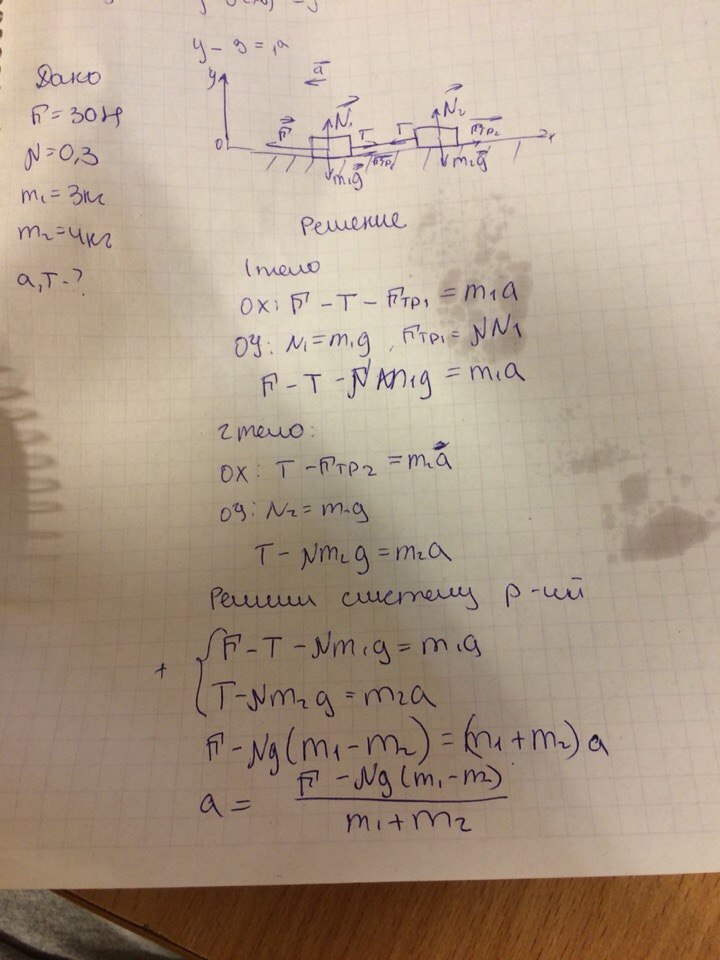 y - g = , a
Дано
F = 30 Н
N = 0,3
m₁ = 3 кг
m₂ = 4 кг
a, T - ?
y a
F N₁ T T N₂ Fтр₂ x
0 m₁g Fтр₁ m₂g
Решение
1 тело
OX: F - T - Fтр₁ = m₁a
OY: N₁ = m₁g, Fтр₁ = NN₁
F - T - Nm₁g = m₁a
2 тело:
OX: T - Fтр₂ = m₂a
OY: N₂ = m₂g
T - Nm₂g = m₂a
Решим систему р-ий
+ { F - T - Nm₁g = m₁g
T - Nm₂g = m₂a
F - Ng(m₁ - m₂) = (m₁ + m₂)a
a = F - Ng(m₁ - m₂)
m₁ + m₂